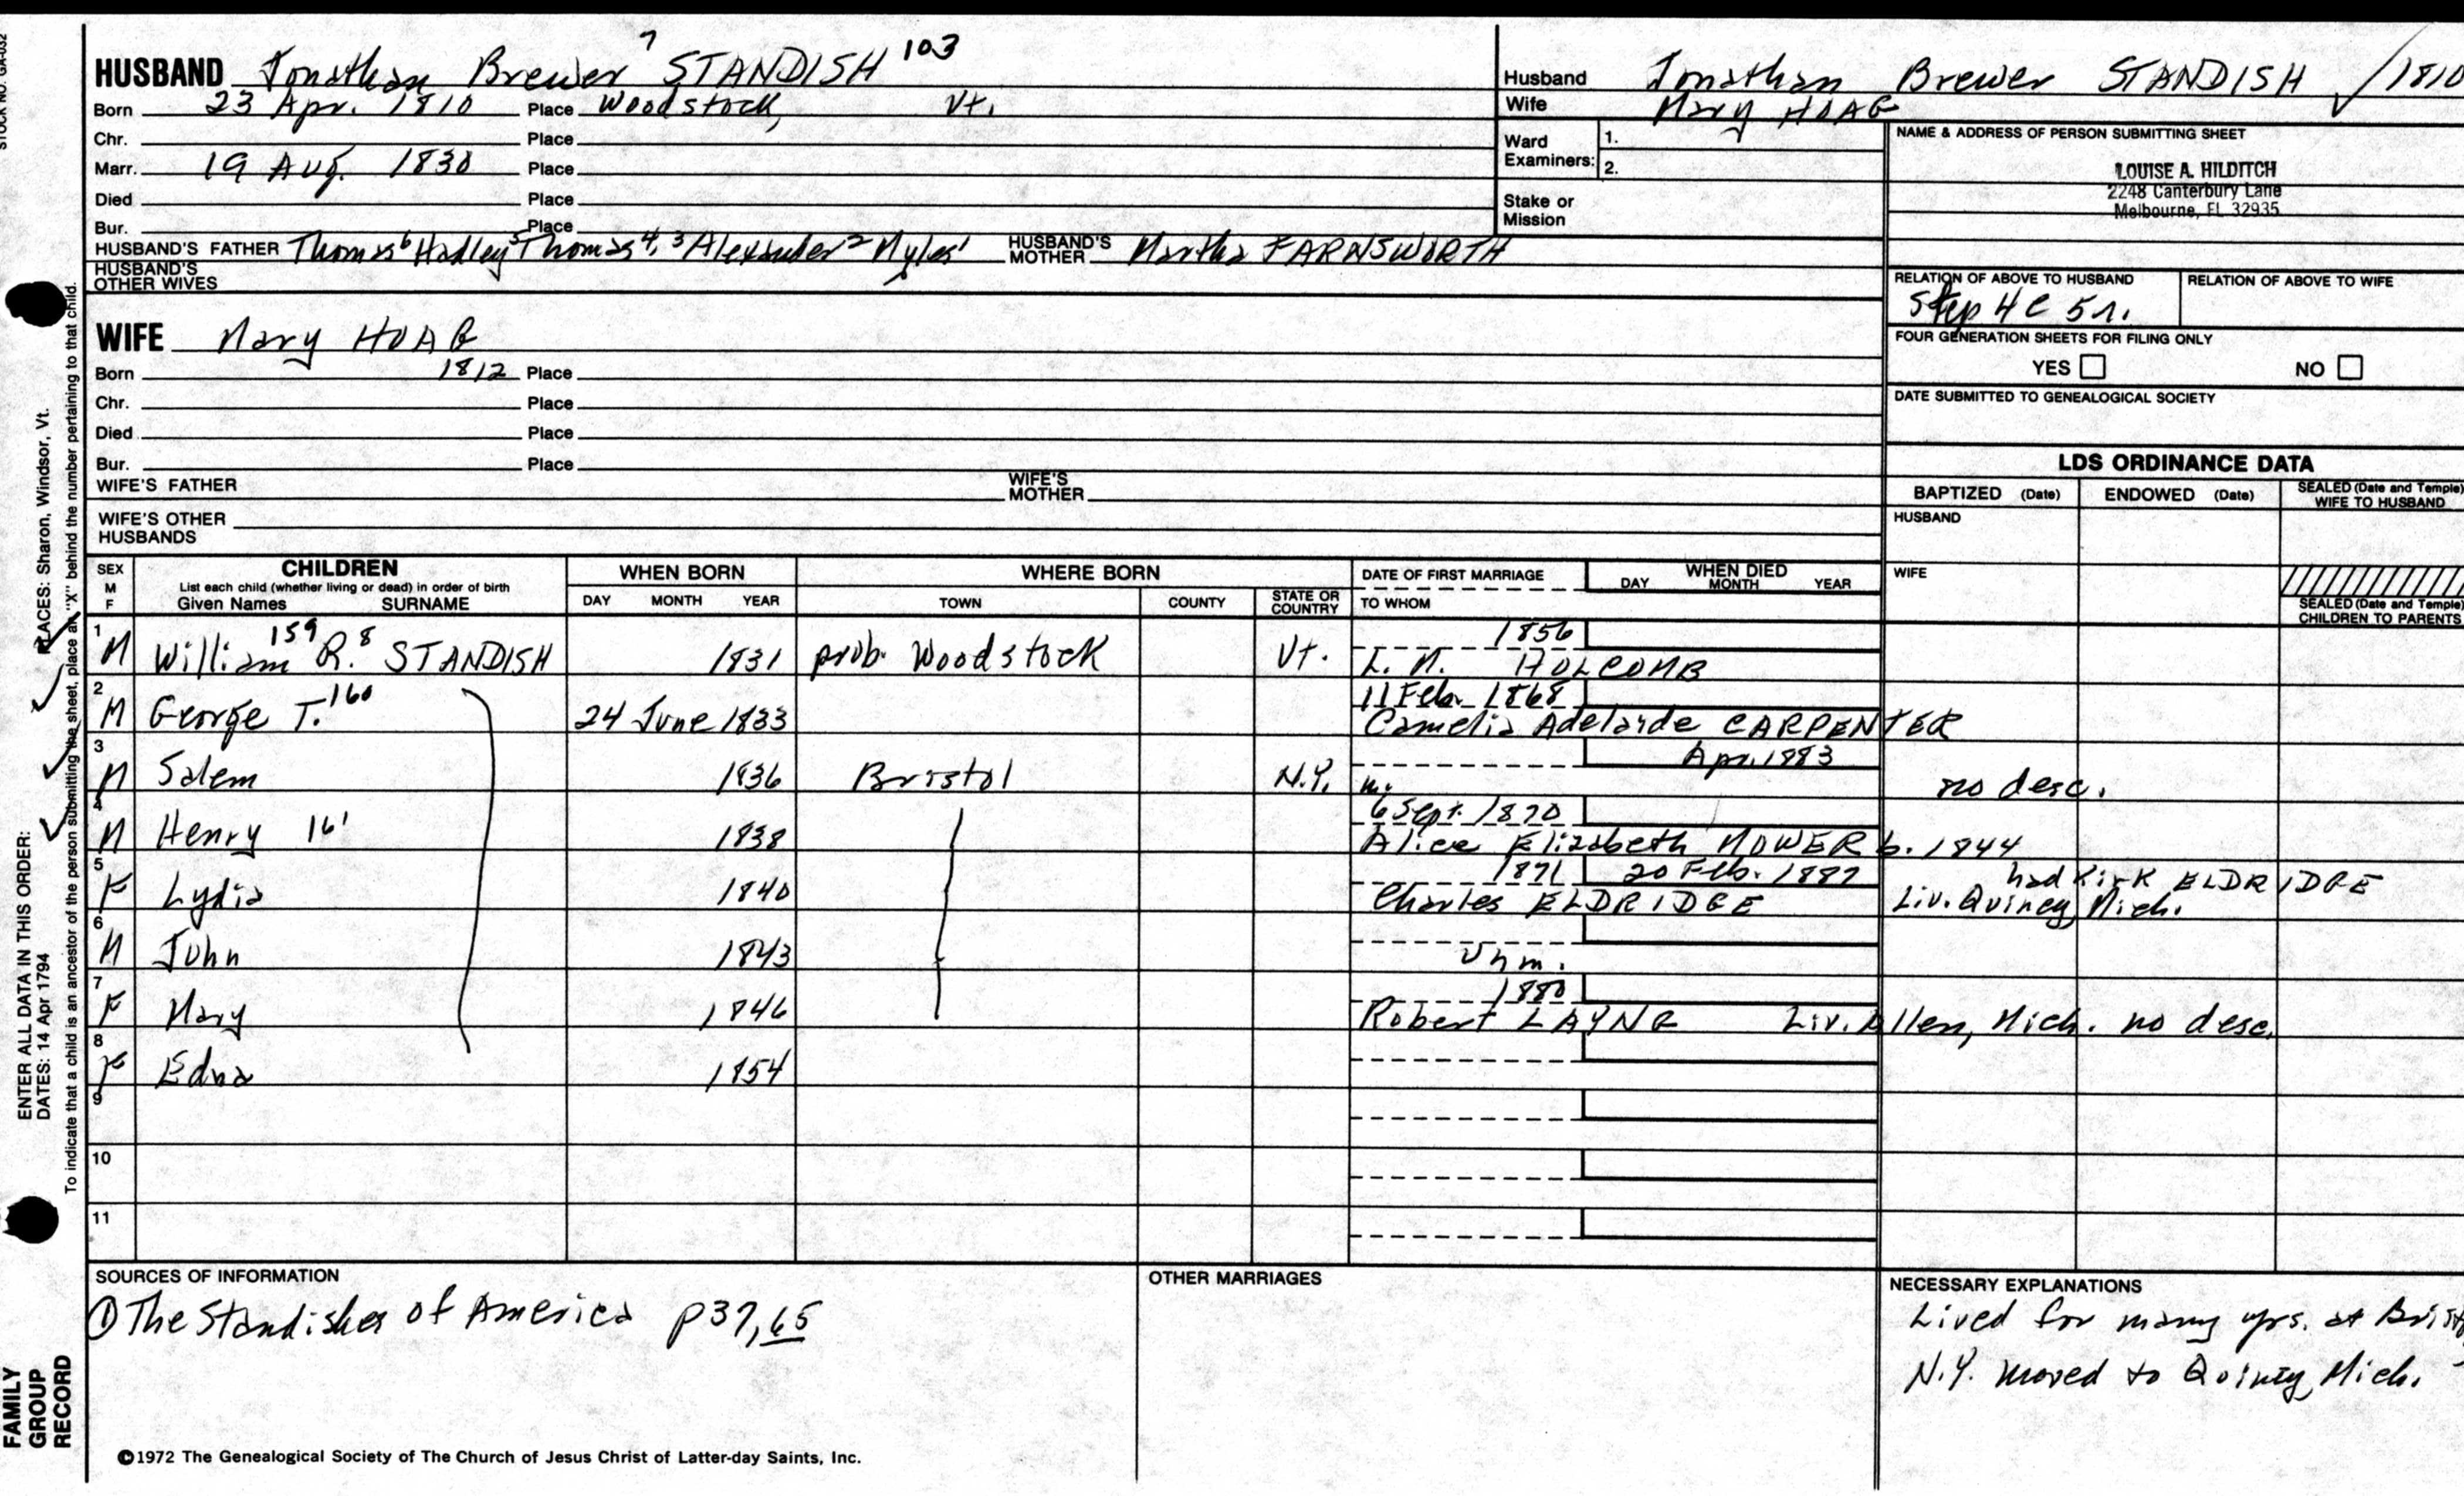 STOCK NO. GA-032
HUSBAND Jonathan Brewer 7 STANDISH 103
Born 23 Apr. 1810 Place Woodstock, Vt.
Chr. Place
Marr. 19 Aug. 1830 Place
Died Place
Bur. Place
HUSBAND'S FATHER Thomas 6 Hadley 5 Thomas 4, 3 Alexander 2 Myles 1 HUSBAND'S MOTHER Martha FARNSWORTH
HUSBAND'S OTHER WIVES
WIFE Mary HOAG
Born 1812 Place
Chr. Place
Died Place
Bur. Place
WIFE'S FATHER WIFE'S MOTHER
WIFE'S OTHER HUSBANDS
Husband Jonathan Brewer STANDISH 1810
Wife Mary HOAG
Ward Examiners: 1.
2.
Stake or Mission
NAME & ADDRESS OF PERSON SUBMITTING SHEET
LOUISE A. HILDITCH
2248 Canterbury Lane
Melbourne, FL 32935
RELATION OF ABOVE TO HUSBAND RELATION OF ABOVE TO WIFE
Step 4C 5r.
FOUR GENERATION SHEETS FOR FILING ONLY
YES NO
DATE SUBMITTED TO GENEALOGICAL SOCIETY
LDS ORDINANCE DATA
BAPTIZED (Date) ENDOWED (Date) SEALED (Date and Temple) WIFE TO HUSBAND
HUSBAND
WIFE
SEALED (Date and Temple) CHILDREN TO PARENTS
SEX M F CHILDREN WHEN BORN WHERE BORN DATE OF FIRST MARRIAGE WHEN DIED
List each child (whether living or dead) in order of birth
Given Names SURNAME DAY MONTH YEAR TOWN COUNTY STATE OR COUNTRY TO WHOM DAY MONTH YEAR
1 M William 159 R. 8 STANDISH 1831 prob. Woodstock Vt. 1856
L. M. HOLCOMB
2 M George T. 160 24 June 1833 11 Feb. 1868
Camelia Adelaide CARPENTER
3 M Salem 1836 Bristol N.Y. m. Apr. 1883 no desc.
4 M Henry 161 1838 6 Sept. 1870
Alice Elizabeth MOWER b. 1844
5 F Lydia 1840 1871 20 Feb. 1887 had Kirk ELDRIDGE
Charles ELDRIDGE Liv. Quincy, Mich.
6 M John 1843
Unm.
7 F Mary 1846 1880
Robert LAYNE Liv. Allen, Mich. no desc.
8 F Edna 1854
9
10
11
SOURCES OF INFORMATION
① The Standishes of America p 37, 65
OTHER MARRIAGES
NECESSARY EXPLANATIONS
Lived for many yrs. at
N.Y. moved to Quincy, Mich.
©1972 The Genealogical Society of The Church of Jesus Christ of Latter-day Saints, Inc.
FAMILY
GROUP
RECORD
ENTER ALL DATA IN THIS ORDER:
DATES: 14 Apr 1794 PLACES: Sharon, Windsor, Vt.
To indicate that a child is an ancestor of the person submitting the sheet, place an "X" behind the number pertaining to that child.